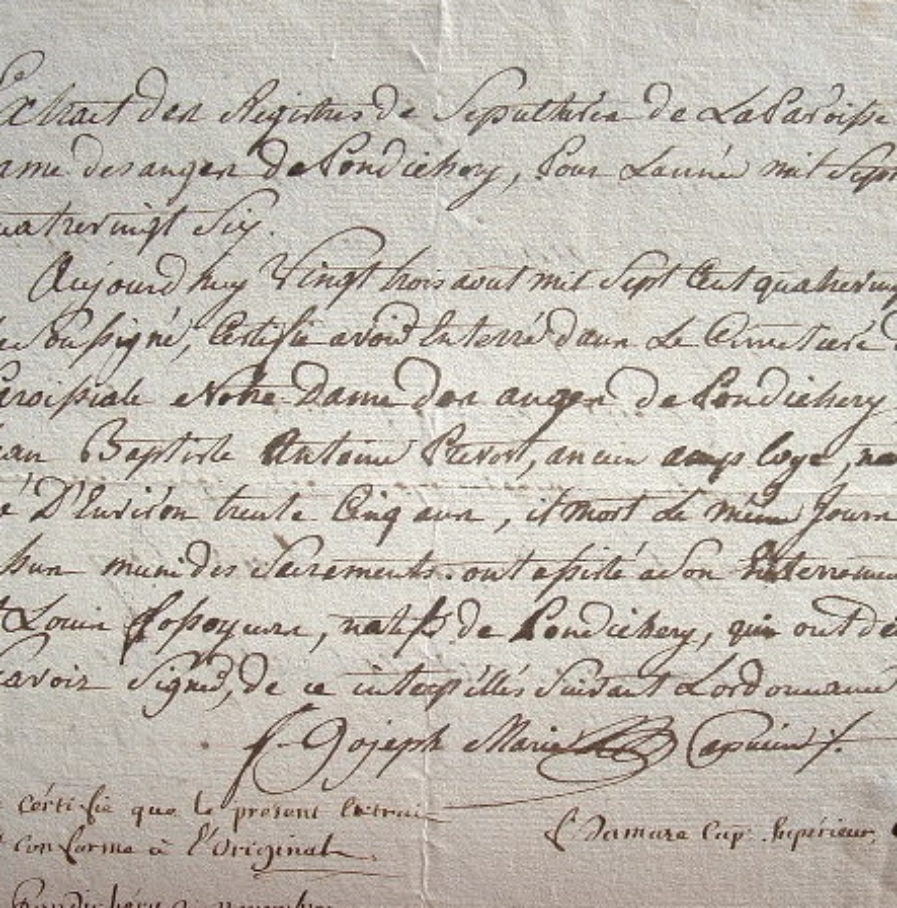 Extrait des Registres de Sepulthrés de La Paroisse
ame des anges de Pondichery, Pour Lannée mil Sept
uatrevingt Six.
Aujourdhuy Vingt trois aout mil Sept Cent quatreving
Soussigné, Certifie avoir Enterré dans Le Cimetieré d
aroissiale Notre Dame des anges de Pondichery
ean Baptiste Antoine Prevot, ancien employé, na
é D'Enviròn trente Cinq ans, il mort Le même Jour
muni des Sacrements. ont assisté a Son Enterreme
t Louis natif de Pondichery, qui ont dé
avoir Signer, de ce interpéllés Suivant Lordonnance
f. Joseph Marie Capucin /.
certifie que le present Extrai
conforme à l'Original
f. Damase Cap. Supérieur,
Pondichéry novembre